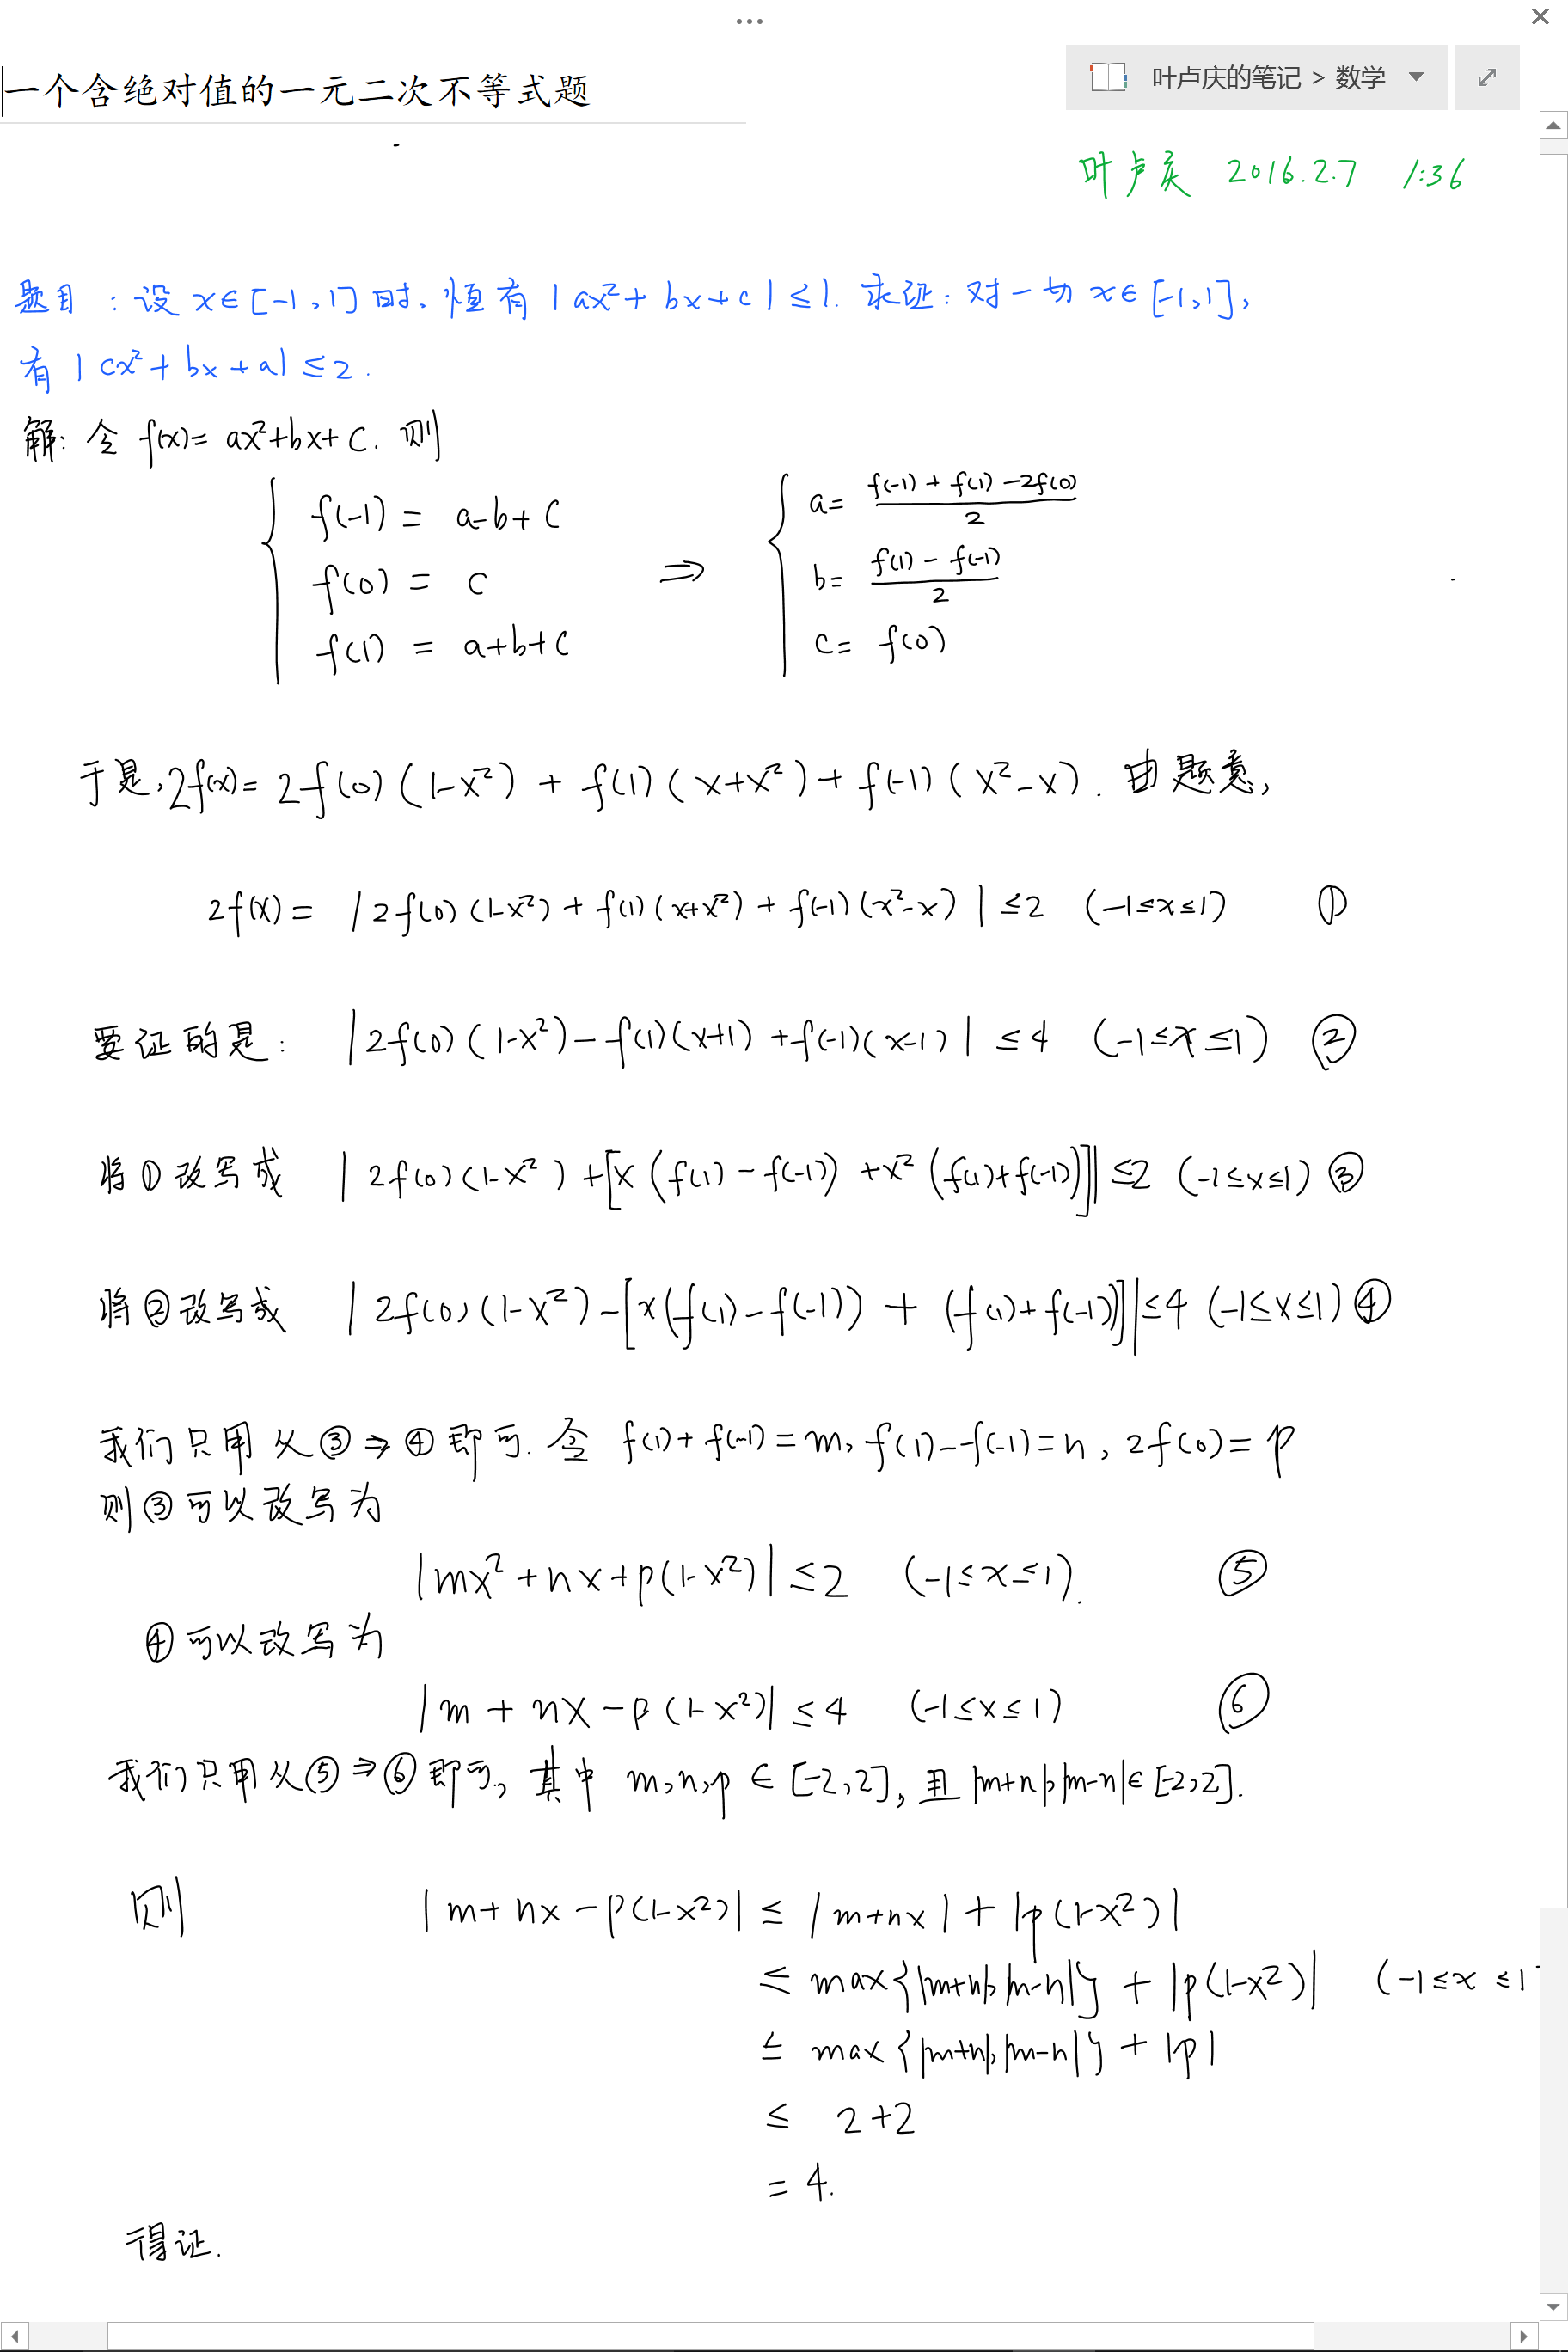 一个含绝对值的一元二次不等式题
叶卢庆的笔记 > 数学
叶卢庆 2016.2.7 1:36
题目:设 x∈[-1,1]时,恒有|ax²+bx+c|≤1.求证:对一切 x∈[-1,1],
有|cx²+bx+a|≤2.
解:令 f(x)=ax²+bx+c.则
{ f(-1)=a-b+c
f(0)=c
f(1)=a+b+c
⇒
{ a=(f(-1)+f(1)-2f(0))/2
b=(f(1)-f(-1))/2
c=f(0)
于是,2f(x)=2f(0)(1-x²)+f(1)(x+x²)+f(-1)(x²-x).由题意,
2f(x)=|2f(0)(1-x²)+f(1)(x+x²)+f(-1)(x²-x)|≤2 (-1≤x≤1) ①
要证的是: |2f(0)(1-x²)-f(1)(x+1)+f(-1)(x-1)|≤4 (-1≤x≤1) ②
将①改写成 |2f(0)(1-x²)+[x(f(1)-f(-1))+x²(f(1)+f(-1))]|≤2 (-1≤x≤1) ③
将②改写成 |2f(0)(1-x²)-[x(f(1)-f(-1))+(f(1)+f(-1))]|≤4 (-1≤x≤1) ④
我们只用从③⇒④即可.令 f(1)+f(-1)=m,f(1)-f(-1)=n,2f(0)=p
则③可以改写为
|mx²+nx+p(1-x²)|≤2 (-1≤x≤1). ⑤
④可以改写为
|m+nx-p(1-x²)|≤4 (-1≤x≤1) ⑥
我们只用从⑤⇒⑥即可,其中 m,n,p∈[-2,2],且|m+n|,|m-n|∈[-2,2].
则 |m+nx-p(1-x²)|≤|m+nx|+|p(1-x²)|
≤max{|m+n|,|m-n|}+|p(1-x²)| (-1≤x≤1
≤max{|m+n|,|m-n|}+|p|
≤2+2
=4.
得证.